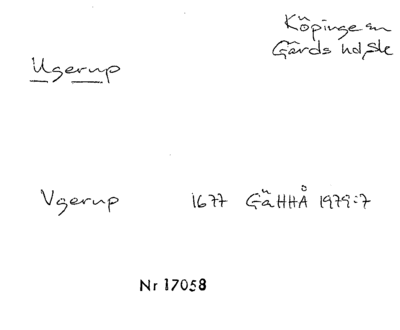 Köpinge sn
Gärds hd, Sk
Ugerup
Vgerup 1677 GäHHÅ 1979:7
Nr 17058